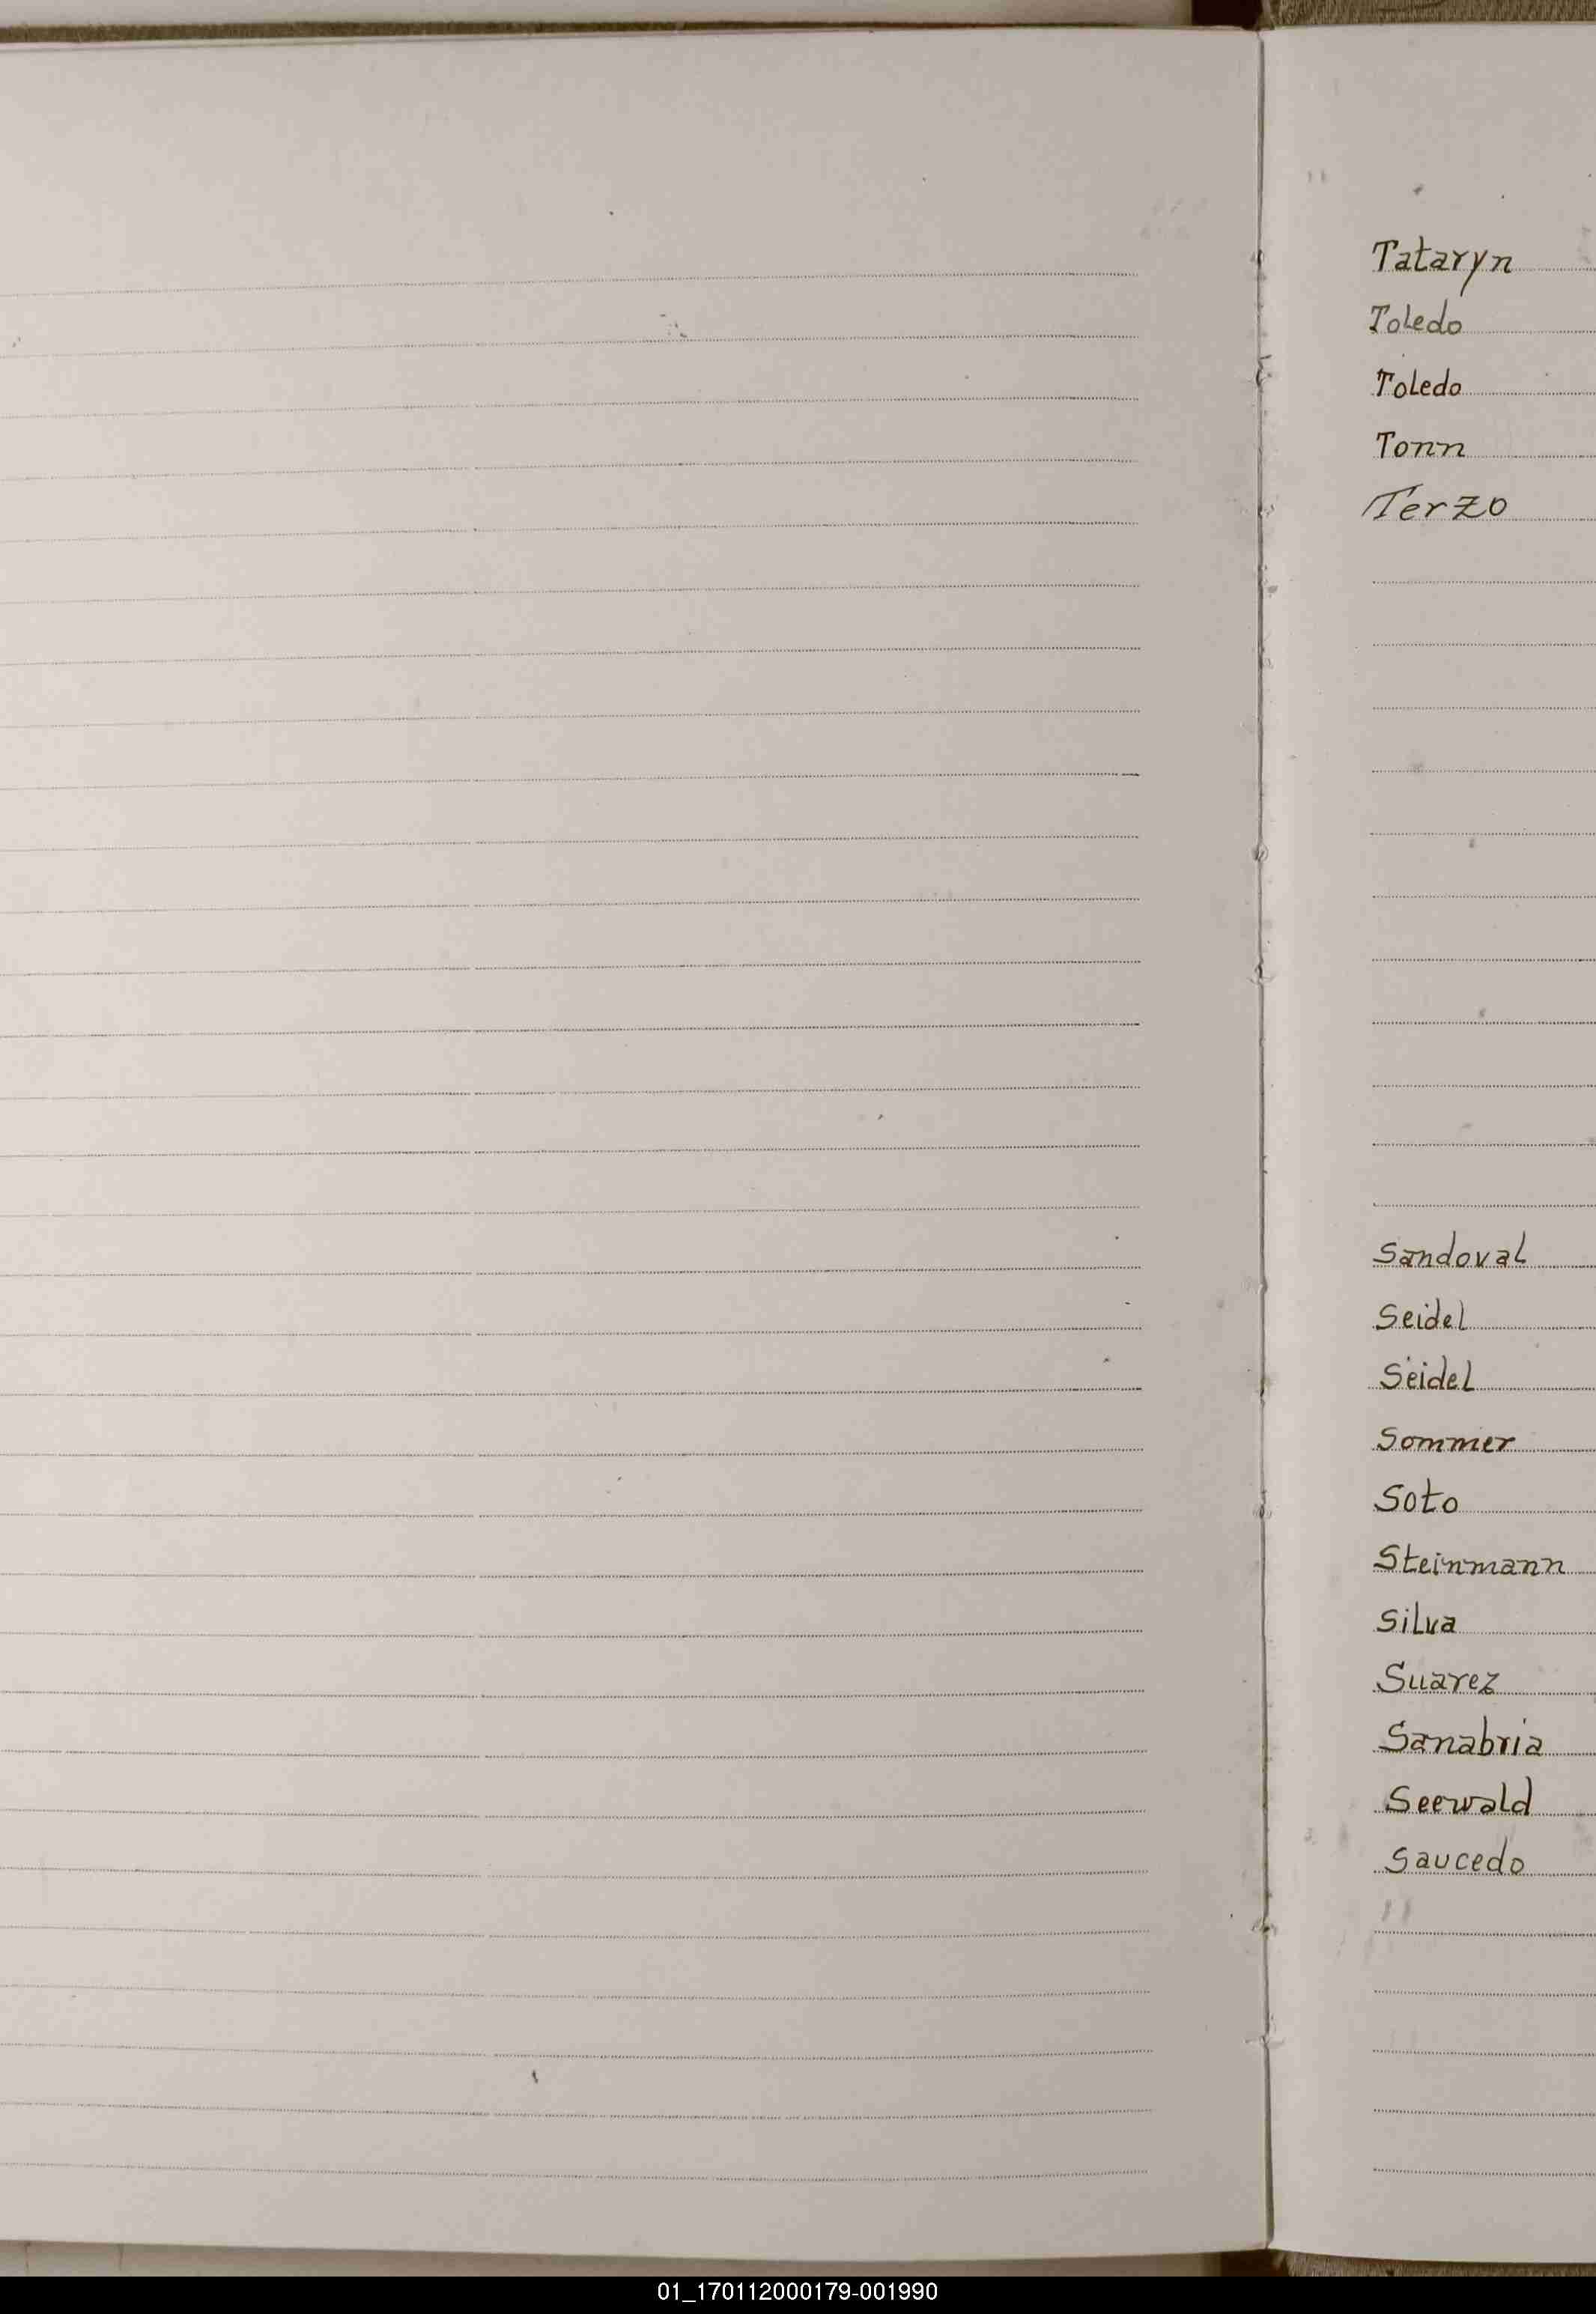 Tataryn
Toledo
Toledo
Tonn
Terzo
Sandoval
Seidel
Seidel
Sommer
Soto
Steinmann
Silva
Suarez
Sanabria
Seewald
Saucedo
01_170112000179-001990